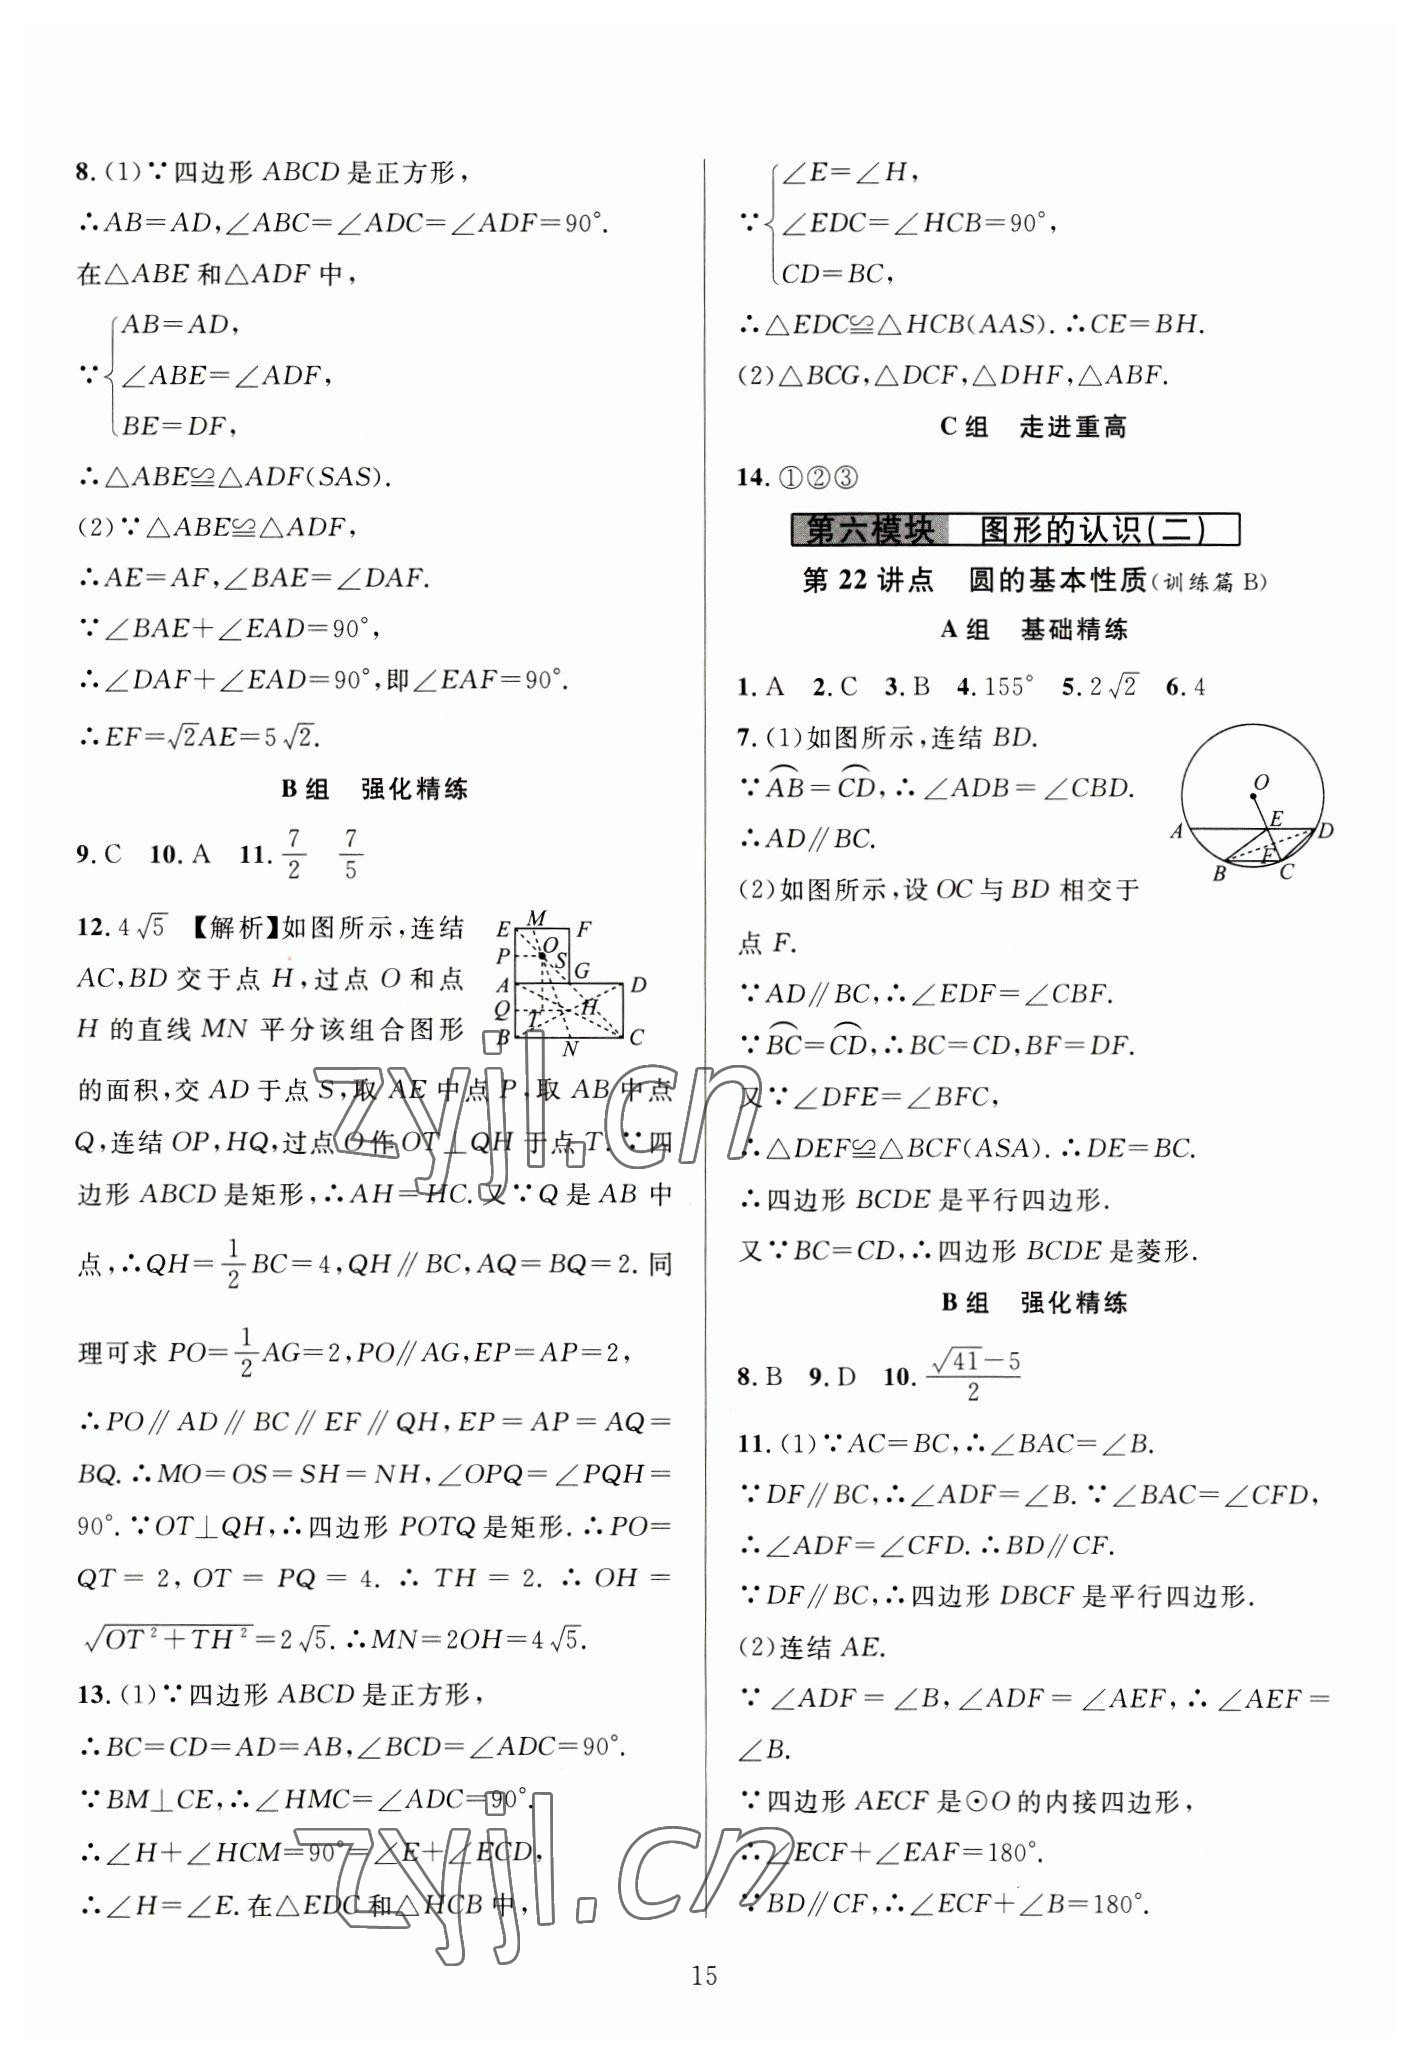 8.(1)∵四边形 ABCD 是正方形，
∴AB=AD,∠ABC=∠ADC=∠ADF=90°.
在△ABE 和△ADF 中，
AB=AD,
∵ ∠ABE=∠ADF,
BE=DF,
∴△ABE≌△ADF(SAS).
(2)∵△ABE≌△ADF,
∴AE=AF,∠BAE=∠DAF.
∵∠BAE+∠EAD=90°,
∴∠DAF+∠EAD=90°,即∠EAF=90°.
∴EF=√2AE=5√2.
B 组 强化精练
9. C 10. A 11. 7/2 7/5
12. 4√5 【解析】如图所示,连结
AC,BD 交于点 H,过点 O 和点
H 的直线 MN 平分该组合图形
E M F
P O S
A G D
Q H
B T N C
的面积,交 AD 于点 S,取 AE 中点 P,取 AB 中点
Q,连结 OP,HQ,过点 O 作 OT⊥QH 于点 T.∵四
边形 ABCD 是矩形,∴AH=HC.又∵Q 是 AB 中
点,∴QH=1/2BC=4,QH∥BC,AQ=BQ=2.同
理可求 PO=1/2AG=2,PO∥AG,EP=AP=2,
∴PO∥AD∥BC∥EF∥QH,EP=AP=AQ=
BQ.∴MO=OS=SH=NH,∠OPQ=∠PQH=
90°.∵OT⊥QH,∴四边形 POTQ 是矩形.∴PO=
QT=2,OT=PQ=4.∴TH=2.∴OH=
√(OT²+TH²)=2√5.∴MN=2OH=4√5.
13.(1)∵四边形 ABCD 是正方形，
∴BC=CD=AD=AB,∠BCD=∠ADC=90°.
∵BM⊥CE,∴∠HMC=∠ADC=90°.
∴∠H+∠HCM=90°=∠E+∠ECD,
∴∠H=∠E.在△EDC 和△HCB 中，
∠E=∠H,
∵ ∠EDC=∠HCB=90°,
CD=BC,
∴△EDC≌△HCB(AAS).∴CE=BH.
(2)△BCG,△DCF,△DHF,△ABF.
C 组 走进重高
14. ①②③
第六模块 图形的认识(二)
第 22 讲点 圆的基本性质(训练篇 B)
A 组 基础精练
1. A 2. C 3. B 4. 155° 5. 2√2 6. 4
7.(1)如图所示,连结 BD.
∵AB⌒=CD⌒,∴∠ADB=∠CBD.
∴AD∥BC.
(2)如图所示,设 OC 与 BD 相交于
点 F.
O
A E D
B F C
∵AD∥BC,∴∠EDF=∠CBF.
∵BC⌒=CD⌒,∴BC=CD,BF=DF.
又∵∠DFE=∠BFC,
∴△DEF≌△BCF(ASA).∴DE=BC.
∴四边形 BCDE 是平行四边形.
又∵BC=CD,∴四边形 BCDE 是菱形.
B 组 强化精练
8. B 9. D 10. (√41-5)/2
11.(1)∵AC=BC,∴∠BAC=∠B.
∵DF∥BC,∴∠ADF=∠B.∵∠BAC=∠CFD,
∴∠ADF=∠CFD.∴BD∥CF.
∵DF∥BC,∴四边形 DBCF 是平行四边形.
(2)连结 AE.
∵∠ADF=∠B,∠ADF=∠AEF,∴∠AEF=
∠B.
∵四边形 AECF 是⊙O 的内接四边形，
∴∠ECF+∠EAF=180°.
∵BD∥CF,∴∠ECF+∠B=180°.
15
zyjl.cn
zyjl.cn